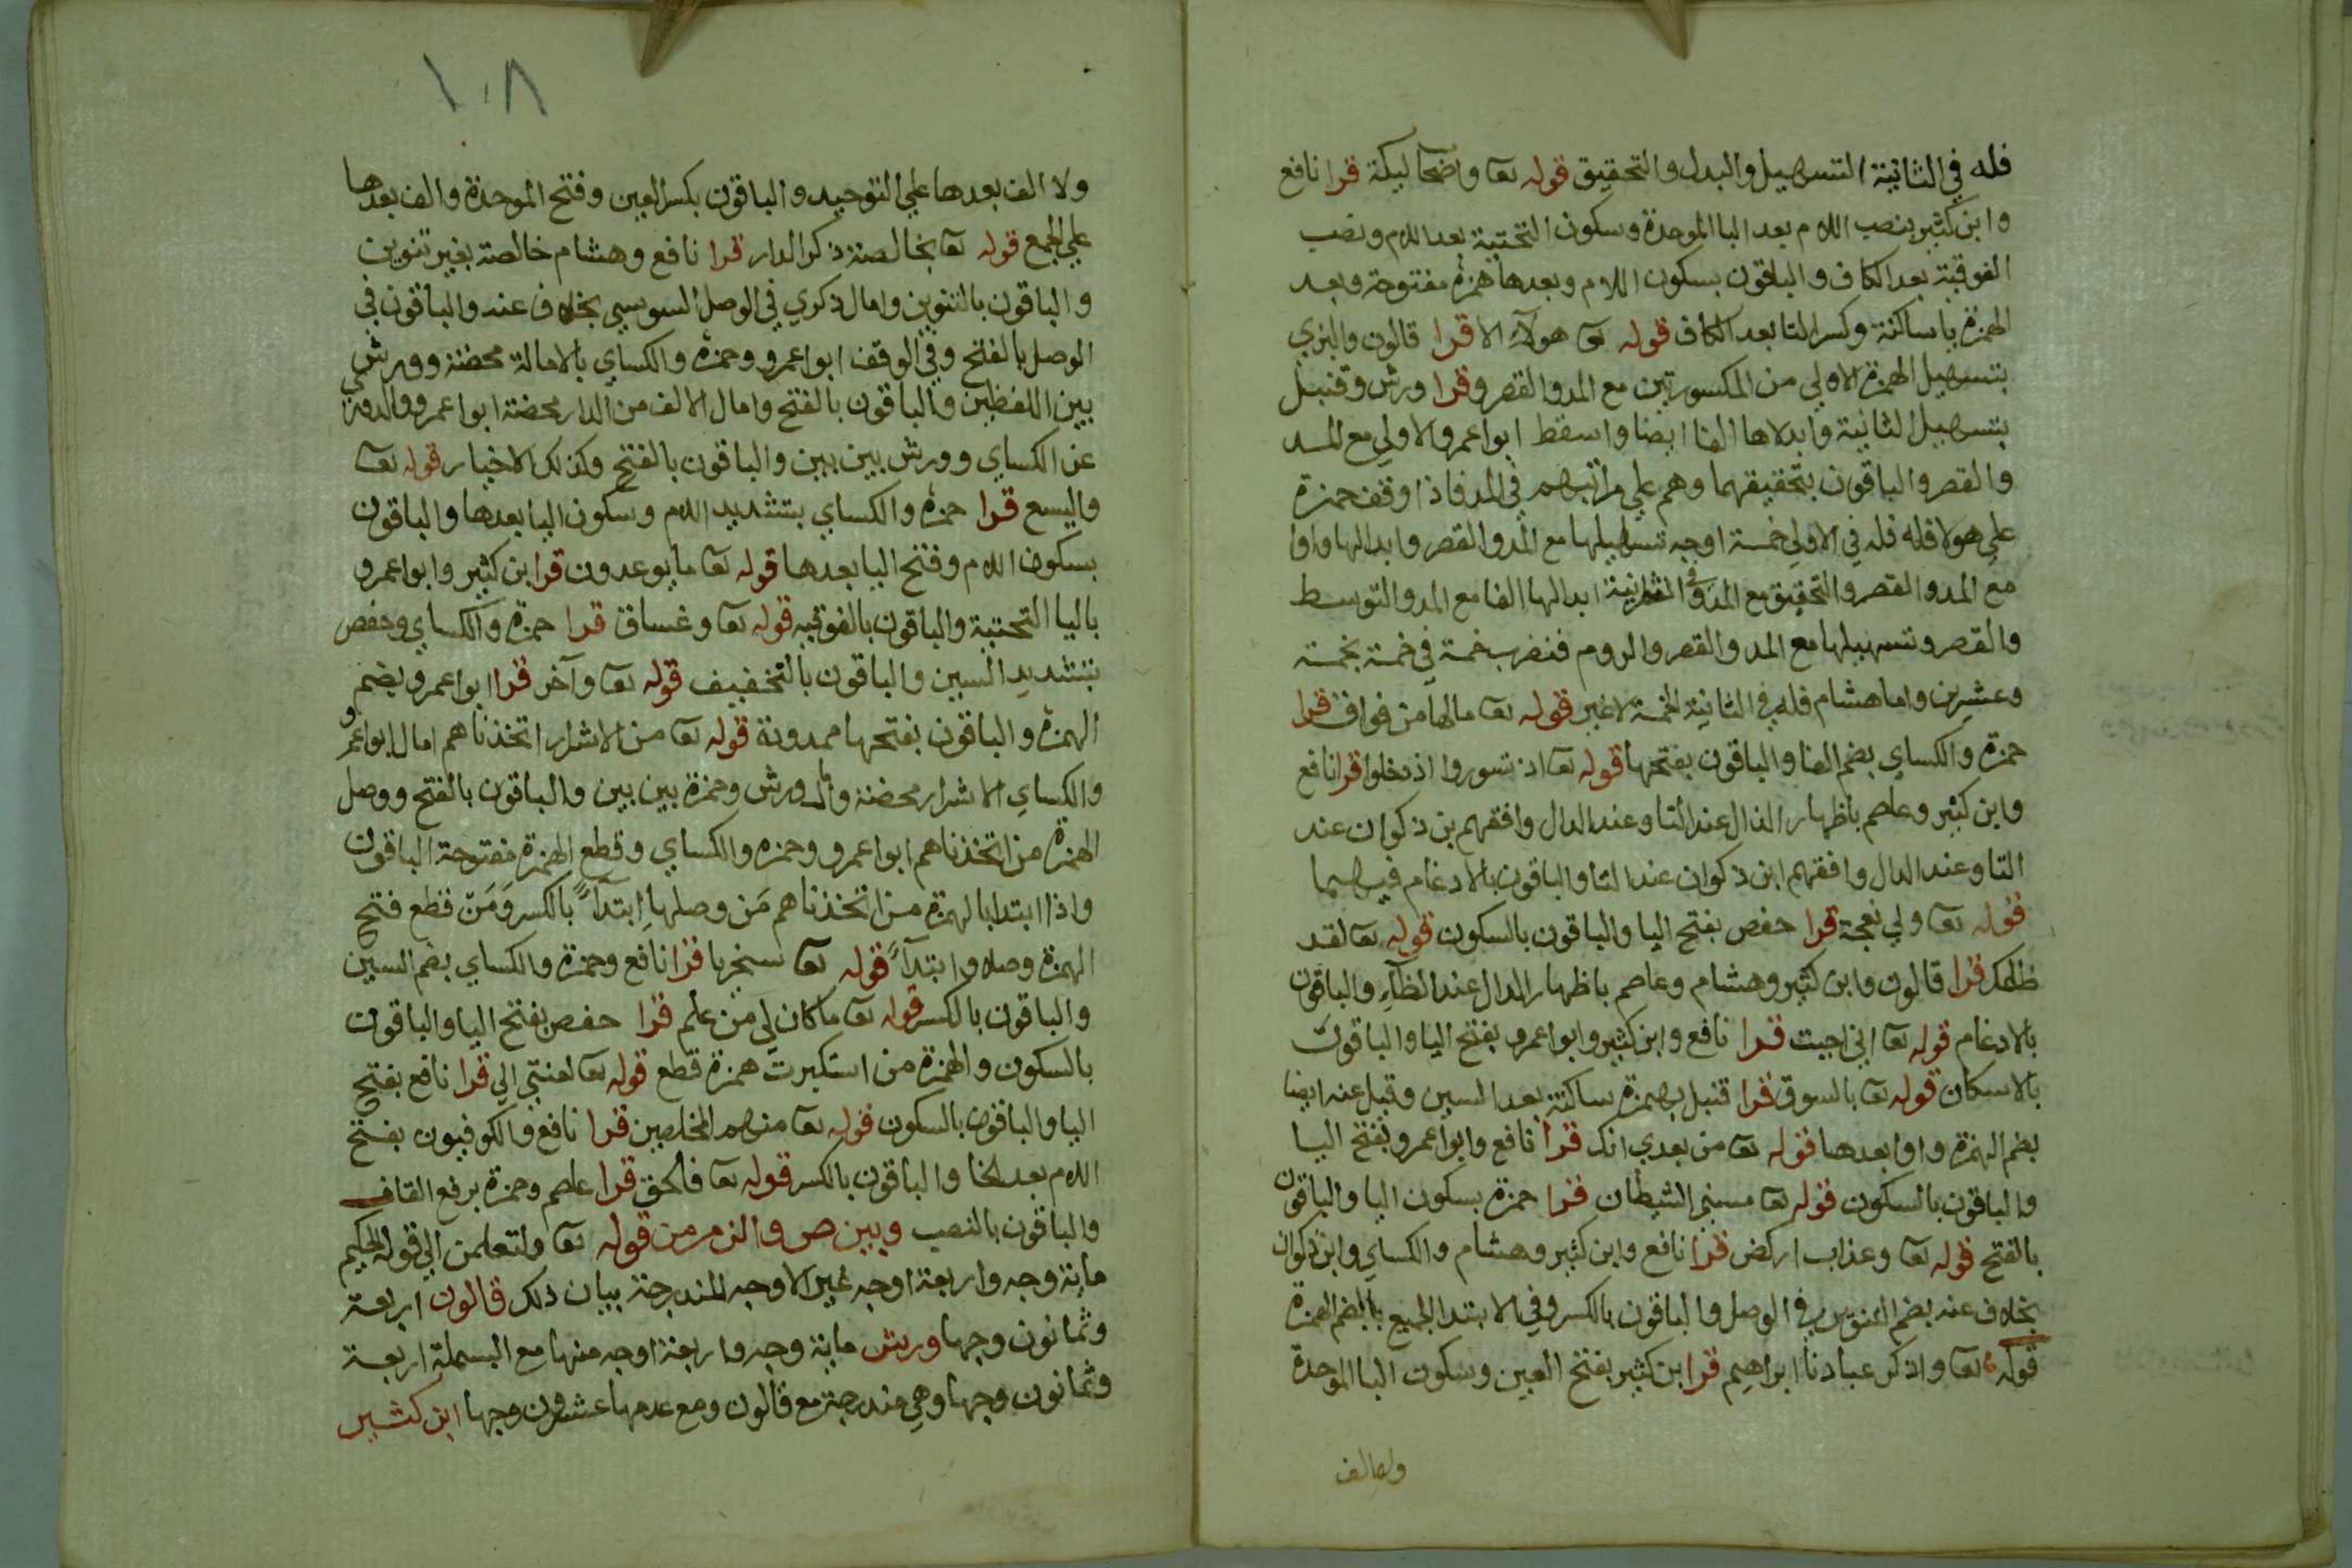 فله في الثانية التسهيل والبدل والتحقيق قوله تعا واصحاب ليكة قرا نافع
وابن كثير بنصب اللام بعد البا الموحدة وسكون التحتية بعد اللام ونصب
الفوقية بعد الكاف والباقون بسكون اللام وبعدها همزة مفتوحة وبعد
الهمزة يا ساكنة وكسر التا بعد الكاف قوله تعا هولآء الا قرا قالون والبزي
بتسهيل الهمزة الاولي من المكسورتين مع المد والقصر وقرا ورش وقنبل
بتسهيل الثانية وابدلاها الفا ايضا واسقط ابوا عمرو الاولي مع المد
والقصر والباقون بتحقيقهما وهم علي مراتبهم في المد فاذا وقف حمزة
علي هولا فله فله في الاولي خمسة اوجه تسهيلها مع المد والقصر وابدالها واوا
مع المد والقصر والتحقيق مع المد وفي الثانية ابدالها الفا مع المد والتوسط
والقصر وتسهيلها مع المد والقصر والروم فنضرب خمسة في خمسة بخمسة
وعشرين واما هشام فله في الثانية الخمسة لا غير قوله تعا مالها من فواق قرا
حمزة والكساي بضم الفا والباقون بفتحها قوله تعا اذ تسوروا اذ دخلوا قرا نافع
وابن كثير وعاصم باظهار الذال عند التا وعند الدال وافقهم بن ذكوان عند
التا وعند الدال وافقهم ابن ذكوان عند التا والباقون بالادغام فيهما
قوله تعا ولي نعجة قرا حفص بفتح اليا والباقون بالسكون قوله تعا لقد
ظلمك قرا قالون وابن كثير وهشام وعاصم باظهار الدال عند الظآء والباقون
بالادغام قوله تعا اني احببت قرا نافع وابن كثير وابوا عمرو بفتح اليا والباقون
بالاسكان قوله تعا بالسوق قرا قنبل بهمزة ساكنة بعد السين وقيل عنه ايضا
بضم الهمزة واوا بعدها قوله تعا من بعدي انك قرا نافع وابوا عمرو بفتح اليا
والباقون بالسكون قوله تعا مسني الشيطان قرا حمزة بسكون اليا والباقون
بالفتح قوله تعا وعذاب اركض قرا نافع وابن كثير وهشام والكساي وابن ذكوان
بخلاف عنه بضم التنوين في الوصل والباقون بالكسر وفي الابتدا الجميع بالضم الهمزة
قوله تعا واذكر عبادنا ابراهيم قرا ابن كثير بفتح العين وسكون البا الموحدة
ولا الف
١٠٨
ولا الف بعدها علي التوحيد والباقون بكسر العين وفتح الموحدة والف بعدها
علي الجمع قوله تعا بخالصة ذكر الدار قرا نافع وهشام خالصة بغير تنوين
والباقون بالتنوين وامال ذكري في الوصل السوسي بخلاف عنه والباقون في
الوصل بالفتح وفي الوقف ابوا عمرو وحمزة والكساي بالامالة محضة وورش
بين اللفظين والباقون بالفتح وامال الالف من الدار محضة ابوا عمرو والدوري
عن الكساي وورش بين بين والباقون بالفتح وكذلك الاخيار قوله تعا
واليسع قرا حمزة والكساي بتشديد اللام وسكون اليا بعدها والباقون
بسكون اللام وفتح اليا بعدها قوله تعا ما يوعدون قرا ابن كثير وابوا عمرو
باليا التحتية والباقون بالفوقيه قوله تعا وغساق قرا حمزة والكساي وحفص
بتشديد السين والباقون بالتخفيف قوله تعا وآخر قرا ابوا عمرو بضم
الهمزة والباقون بفتحها ممدودة قوله تعا من الاشرار اتخذناهم امال ابوا عمرو
والكساي الاشرار محضة وامال ورش وحمزة بين بين والباقون بالفتح ووصل
الهمزة من اتخذناهم ابوا عمرو وحمزه والكساي وقطع الهمزة مفتوحة الباقون
واذا ابتدا بالهمزة من اتخذناهم مَن وصلها اِبتدآءً بالكسر وَمَن قطع فتح
الهمزة وصلا وابتدآءً قوله تعا سخريا قرا نافع وحمزة والكساي بضم السين
والباقون بالكسر قوله تعا ما كان لي من علم قرا حفص بفتح اليا والباقون
بالسكون والهمزة من استكبرت همزة قطع قوله تعا لعنتي الي قرا نافع بفتح
اليا والباقون بالسكون قوله تعا منهم المخلصين قرا نافع والكوفيون بفتح
اللام بعد الخا والباقون بالكسر قوله تعا فالحق قرا عاصم وحمزة برفع القاف
والباقون بالنصب وبين ص والزمر من قوله تعا ولتعلمن الي قوله الحكيم
ماية وجه واربعة اوجه غير الاوجه المندرجة بيان ذلك قالون اربعة
وثمانون وجها ورش ماية وجه واربعة اوجه منها مع البسملة اربعة
وثمانون وجها وهي مندرجة مع قالون ومع عدمها عشرون وجها ابن كثير